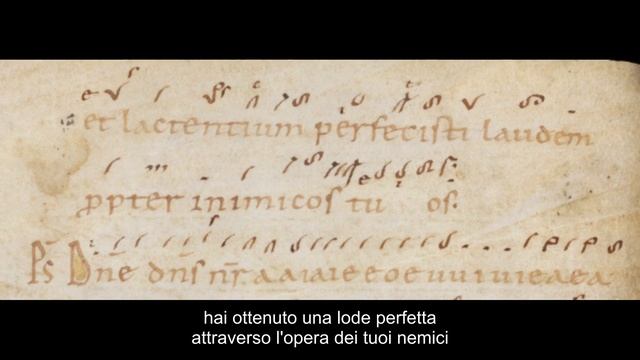 et lactentium perfecisti laudem
ppter inimicos tu os.
Ps Dne dns nr. a a i a i e e o e u u i u i e a e a
hai ottenuto una lode perfetta
attraverso l'opera dei tuoi nemici